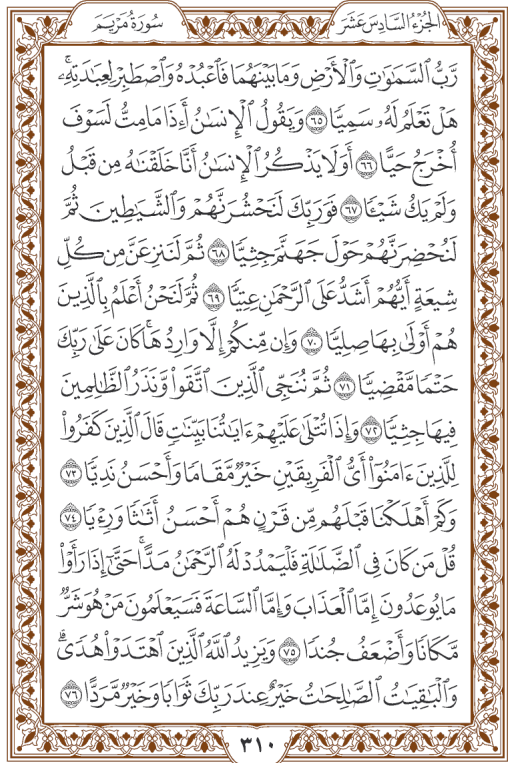 الجزء السادس عشر
سورة مريم
رَّبُّ ٱلسَّمَٰوَٰتِ وَٱلْأَرْضِ وَمَا بَيْنَهُمَا فَٱعْبُدْهُ وَٱصْطَبِرْ لِعِبَٰدَتِهِۦۚ
هَلْ تَعْلَمُ لَهُۥ سَمِيًّا ٦٥ وَيَقُولُ ٱلْإِنسَٰنُ أَءِذَا مَا مِتُّ لَسَوْفَ
أُخْرَجُ حَيًّا ٦٦ أَوَلَا يَذْكُرُ ٱلْإِنسَٰنُ أَنَّا خَلَقْنَٰهُ مِن قَبْلُ
وَلَمْ يَكُ شَيْـًٔا ٦٧ فَوَرَبِّكَ لَنَحْشُرَنَّهُمْ وَٱلشَّيَٰطِينَ ثُمَّ
لَنُحْضِرَنَّهُمْ حَوْلَ جَهَنَّمَ جِثِيًّا ٦٨ ثُمَّ لَنَنزِعَنَّ مِن كُلِّ
شِيعَةٍ أَيُّهُمْ أَشَدُّ عَلَى ٱلرَّحْمَٰنِ عِتِيًّا ٦٩ ثُمَّ لَنَحْنُ أَعْلَمُ بِٱلَّذِينَ
هُمْ أَوْلَىٰ بِهَا صِلِيًّا ٧٠ وَإِن مِّنكُمْ إِلَّا وَارِدُهَاۚ كَانَ عَلَىٰ رَبِّكَ
حَتْمًا مَّقْضِيًّا ٧١ ثُمَّ نُنَجِّي ٱلَّذِينَ ٱتَّقَوا۟ وَّنَذَرُ ٱلظَّٰلِمِينَ
فِيهَا جِثِيًّا ٧٢ وَإِذَا تُتْلَىٰ عَلَيْهِمْ ءَايَٰتُنَا بَيِّنَٰتٍ قَالَ ٱلَّذِينَ كَفَرُوا۟
لِلَّذِينَ ءَامَنُوٓا۟ أَىُّ ٱلْفَرِيقَيْنِ خَيْرٌ مَّقَامًا وَأَحْسَنُ نَدِيًّا ٧٣
وَكَمْ أَهْلَكْنَا قَبْلَهُم مِّن قَرْنٍ هُمْ أَحْسَنُ أَثَٰثًا وَرِءْيًا ٧٤
قُلْ مَن كَانَ فِى ٱلضَّلَٰلَةِ فَلْيَمْدُدْ لَهُ ٱلرَّحْمَٰنُ مَدًّاۚ حَتَّىٰٓ إِذَا رَأَوْا۟
مَا يُوعَدُونَ إِمَّا ٱلْعَذَابَ وَإِمَّا ٱلسَّاعَةَ فَسَيَعْلَمُونَ مَنْ هُوَ شَرٌّ
مَّكَانًا وَأَضْعَفُ جُندًا ٧٥ وَيَزِيدُ ٱللَّهُ ٱلَّذِينَ ٱهْتَدَوْا۟ هُدًىۗ
وَٱلْبَٰقِيَٰتُ ٱلصَّٰلِحَٰتُ خَيْرٌ عِندَ رَبِّكَ ثَوَابًا وَخَيْرٌ مَّرَدًّا ٧٦
٣١٠